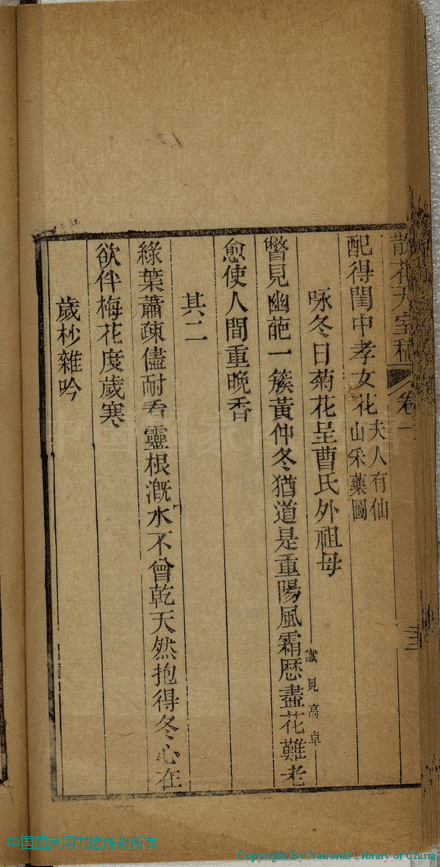 散花天室稿 卷一
配得閨中孝女花夫人有仙山采藥圖
咏冬日菊花呈曹氏外祖母
瞥見幽葩一簇黃仲冬猶道是重陽風霜歷盡花難老
識見高卓
愈使人間重晚香
其二
綠葉蕭疎儘耐看靈根漑水不曾乾天然抱得冬心在
欲伴梅花度歲寒
歲杪雜吟
中国国家图书馆版权所有
Copyright By National Library of China